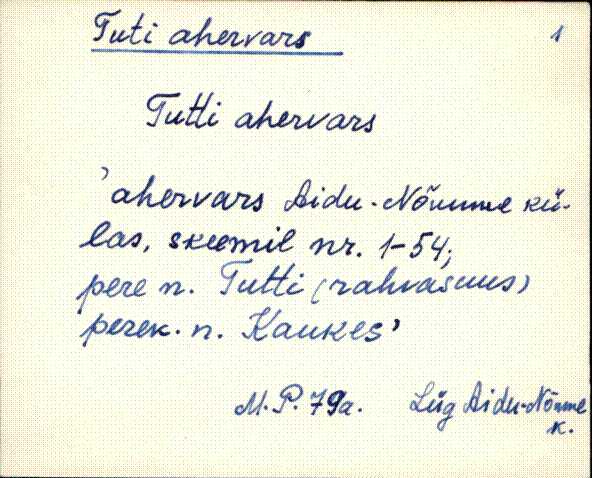 Tuti ahervars 1
Tutti ahervars
'ahervars Aidu-Nõmme kü-
las, skeemil nr. 1-54;
pere n. Tutti (rahvasuus)
perek. n. Kaukes'
M.P. 79a. Lüg Aidu-Nõmme
k.